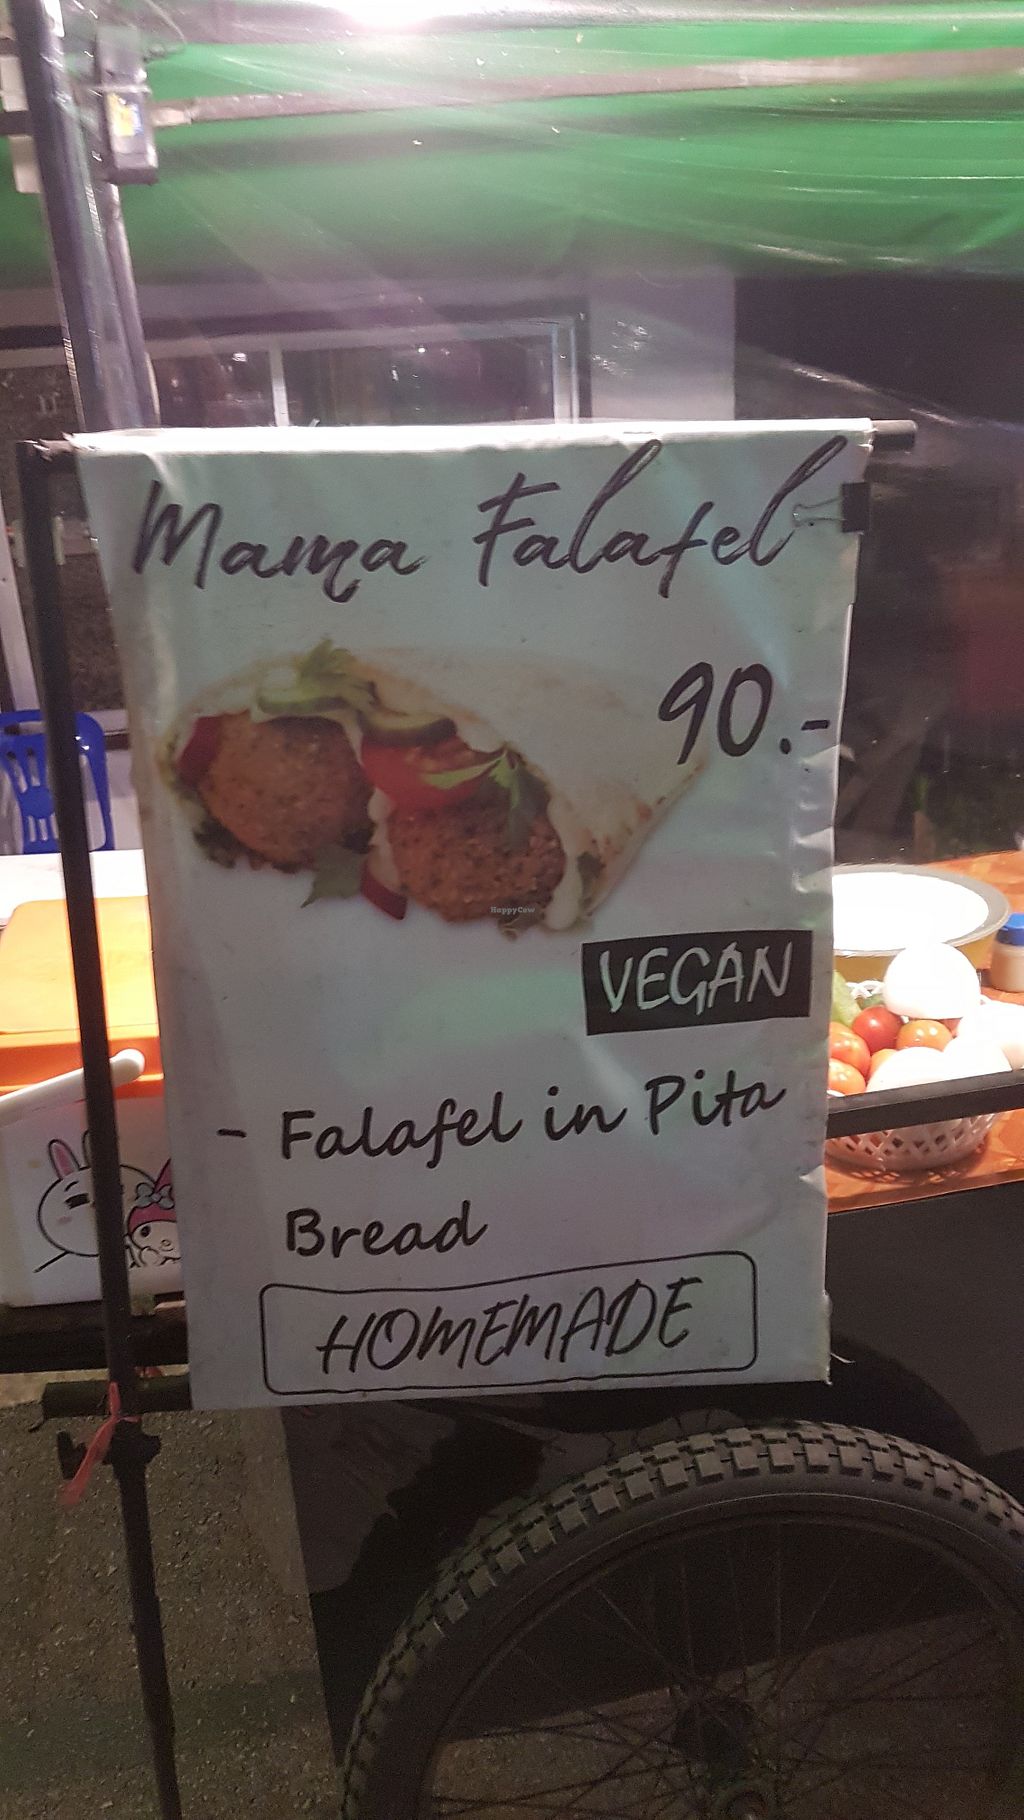 Mama Falafel
90.-
HappyCow
VEGAN
- Falafel in Pita
Bread
HOMEMADE